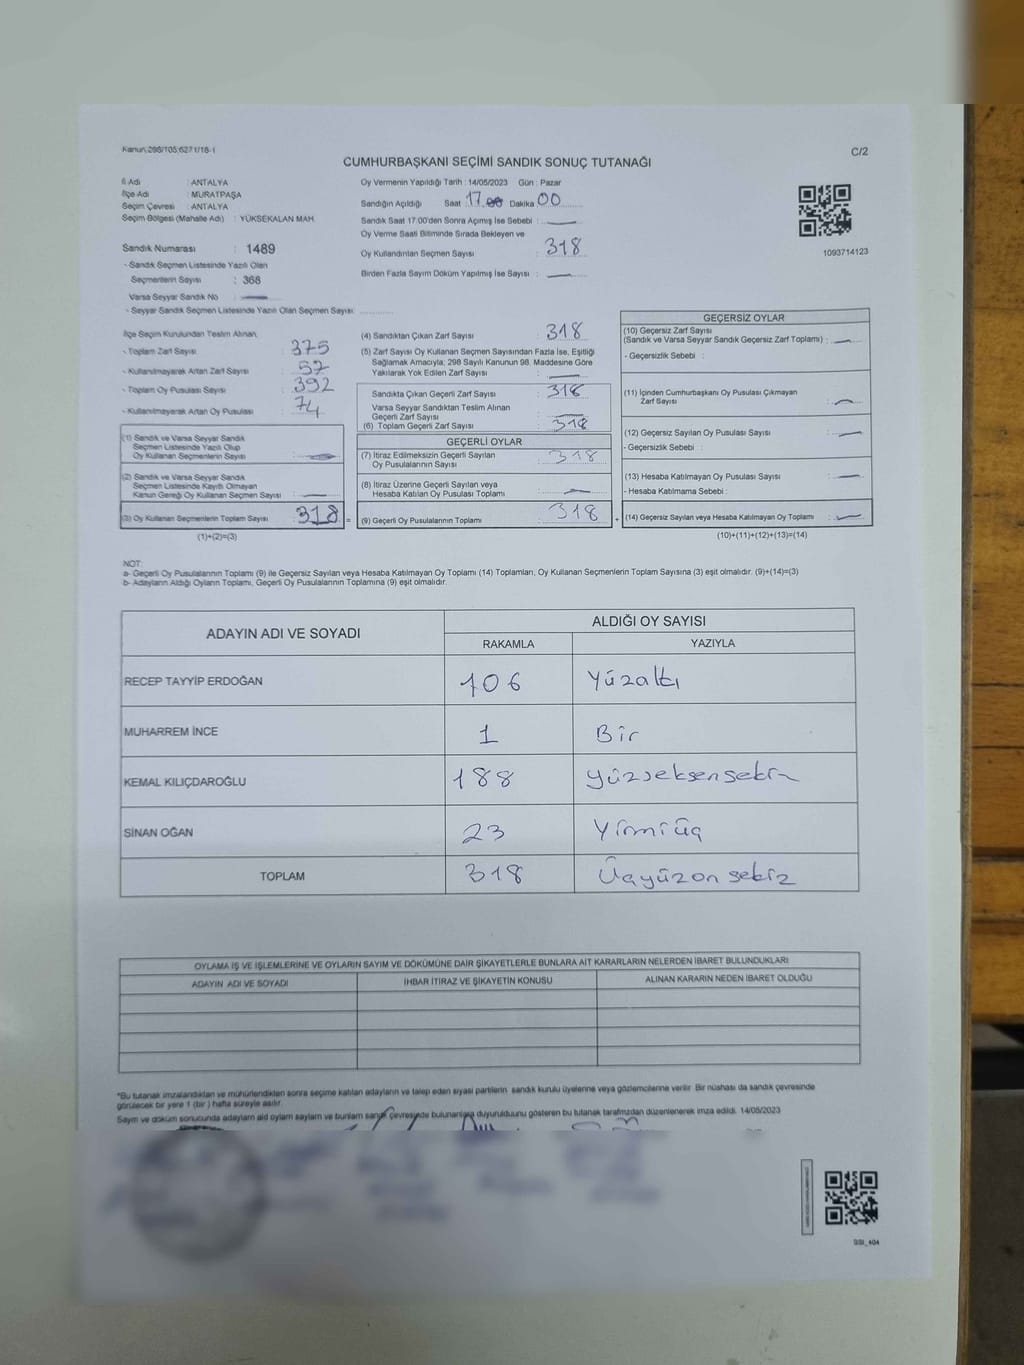 Kanun:298/105;6271/18-1
C/2
CUMHURBAŞKANI SEÇİMİ SANDIK SONUÇ TUTANAĞI
İl Adı : ANTALYA
İlçe Adı : MURATPAŞA
Seçim Çevresi : ANTALYA
Seçim Bölgesi (Mahalle Adı) : YÜKSEKALAN MAH.
Sandık Numarası : 1489
- Sandık Seçmen Listesinde Yazılı Olan
Seçmenlerin Sayısı : 368
Varsa Seyyar Sandık No :
- Seyyar Sandık Seçmen Listesinde Yazılı Olan Seçmen Sayısı:
Oy Vermenin Yapıldığı Tarih : 14/05/2023 Gün : Pazar
Sandığın Açıldığı Saat 17.00 Dakika 00
Sandık Saat 17:00'den Sonra Açımış İse Sebebi :
Oy Verme Saati Bitiminde Sırada Bekleyen ve
Oy Kullandırılan Seçmen Sayısı : 318
Birden Fazla Sayım Döküm Yapılmış İse Sayısı :
1093714123
İlçe Seçim Kurulundan Teslim Alınan;
- Toplam Zarf Sayısı : 375
- Kullanılmayarak Artan Zarf Sayısı : 57
- Toplam Oy Pusulası Sayısı : 392
- Kullanılmayarak Artan Oy Pusulası : 74
(1) Sandık ve Varsa Seyyar Sandık
Seçmen Listesinde Yazılı Olup
Oy Kullanan Seçmenlerin Sayısı :
(2) Sandık ve Varsa Seyyar Sandık
Seçmen Listesinde Kayıtlı Olmayan
Kanun Gereği Oy Kullanan Seçmen Sayısı :
(3) Oy Kullanan Seçmenlerin Toplam Sayısı : 318 =
(1)+(2)=(3)
(4) Sandıktan Çıkan Zarf Sayısı : 318
(5) Zarf Sayısı Oy Kullanan Seçmen Sayısından Fazla İse, Eşitliği
Sağlamak Amacıyla; 298 Sayılı Kanunun 98. Maddesine Göre
Yakılarak Yok Edilen Zarf Sayısı :
Sandıkta Çıkan Geçerli Zarf Sayısı : 318
Varsa Seyyar Sandıktan Teslim Alınan
Geçerli Zarf Sayısı :
(6) Toplam Geçerli Zarf Sayısı : 318
GEÇERLİ OYLAR
(7) İtiraz Edilmeksizin Geçerli Sayılan
Oy Pusulalarının Sayısı : 318
(8) İtiraz Üzerine Geçerli Sayılan veya
Hesaba Katılan Oy Pusulası Toplamı :
(9) Geçerli Oy Pusulalarının Toplamı : 318 +
GEÇERSİZ OYLAR
(10) Geçersiz Zarf Sayısı
(Sandık ve Varsa Seyyar Sandık Geçersiz Zarf Toplamı) :
- Geçersizlik Sebebi :
(11) İçinden Cumhurbaşkanı Oy Pusulası Çıkmayan
Zarf Sayısı :
(12) Geçersiz Sayılan Oy Pusulası Sayısı :
- Geçersizlik Sebebi :
(13) Hesaba Katılmayan Oy Pusulası Sayısı :
- Hesaba Katılmama Sebebi :
(14) Geçersiz Sayılan veya Hesaba Katılmayan Oy Toplamı :
(10)+(11)+(12)+(13)=(14)
NOT:
a- Geçerli Oy Pusulalarının Toplamı (9) ile Geçersiz Sayılan veya Hesaba Katılmayan Oy Toplamı (14) Toplamları, Oy Kullanan Seçmenlerin Toplam Sayısına (3) eşit olmalıdır. (9)+(14)=(3)
b- Adayların Aldığı Oyların Toplamı, Geçerli Oy Pusulalarının Toplamına (9) eşit olmalıdır.
ADAYIN ADI VE SOYADI
ALDIĞI OY SAYISI
RAKAMLA YAZIYLA
RECEP TAYYİP ERDOĞAN 106 Yüzaltı
MUHARREM İNCE 1 Bir
KEMAL KILIÇDAROĞLU 188 Yüzseksensekiz
SİNAN OĞAN 23 Yirmiüç
TOPLAM 318 Üçyüzonsekiz
OYLAMA İŞ VE İŞLEMLERİNE VE OYLARIN SAYIM VE DÖKÜMÜNE DAİR ŞİKAYETLERLE BUNLARA AİT KARARLARIN NELERDEN İBARET BULUNDUKLARI
ADAYIN ADI VE SOYADI İHBAR İTİRAZ VE ŞİKAYETİN KONUSU ALINAN KARARIN NEDEN İBARET OLDUĞU
*Bu tutanak imzalandıktan ve mühürlendikten sonra seçime katılan adayların ve talep eden siyasi partilerin sandık kurulu üyelerine veya gözlemcilerine verilir. Bir nüshası da sandık çevresinde
görülecek bir yere 1 (bir ) hafta süreyle asılır.
Sayım ve döküm sonucunda adayların aldı oyların sayların ve bunların sandık çevresinde bulunanlara duyurulduunu gösteren bu tutanak tarafımızdan düzenlenerek imza edildi. 14/05/2023